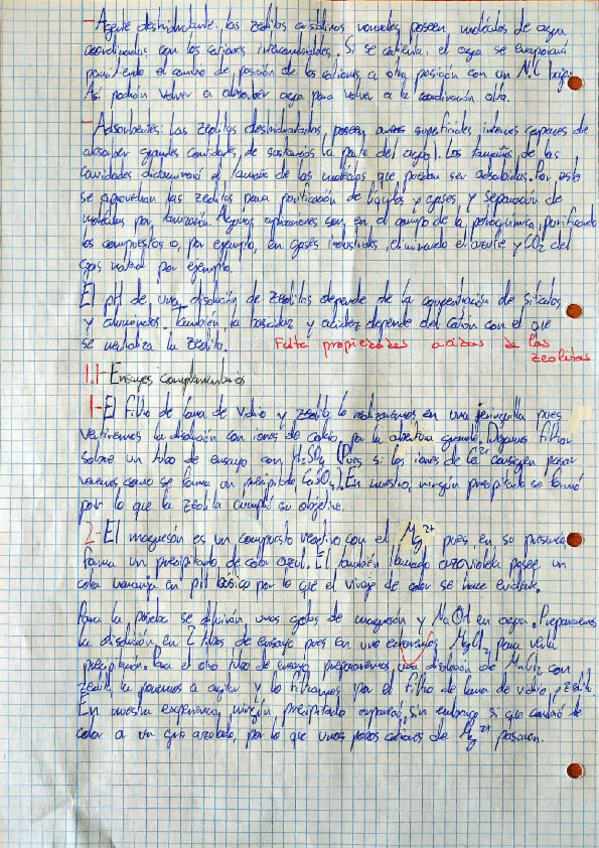 -Agente deshidratante: las zeolitas cristalinas normales poseen moléculas de agua
coordinadas con los cationes intercambiables. Si se calienta, el agua se evaporará
permitiendo el cambio de posición de los cationes a otra posición con un N.C
Así podrán volver a absorber agua para volver a la coordinación alta.
-Adsorbentes: Las zeolitas deshidratadas, poseen superficiales internas capaces de
absorber grandes cantidades de sustancias (a parte del agua). Los tamaños de las
cavidades dictaminará el tamaño de las moléculas que puedan ser adsorbidas. Por esto
se aprovechan las zeolitas para purificación de líquidos y gases y separación de
moléculas por Algunas aplicaciones son, en el campo de la petroquímica, purificando
los compuestos o, por ejemplo, en gases industriales, eliminando el y CO2 del
gas natural por ejemplo.
El pH de una disolución de zeolitas depende de la concentración de silicatos
y aluminatos. También la basicidad y acidez depende del catión con el que
se neutraliza la zeolita. Falta propiedades acidas de las
zeolitas
1.1- Ensayos complementarios
1-El filtro de lana de vidrio y zeolita lo realizaremos en una jeringuilla pues
vertiremos la disolución con iones de calcio por la abertura grande. Dejamos filtrar
sobre un tubo de ensayo con H2SO4 (Pues si los iones de Ca2+ consiguen pasar
veremos como se forma un precipitado CaSO4). En nuestro, ningún precipitado se formó
por lo que la zeolita cumplió su objetivo.
2-El magnesón es un compuesto reactivo con el Mg2+ pues en su presencia
forma un precipitado de color azul. El también llamado azovioleta posee un
color naranja en pH básico por lo que el viraje de color se hace evidente.
Para la prueba se diluirán, unas gotas de magnesón y NaOH en agua. Preparamos
la disolución en 2 tubos de ensayo pues en uno MgCl2 para ver la
precipitación. Para el otro tubo de ensayo prepararemos una disolución de MgCl2 con
zeolita, la ponemos a agitar y lo filtramos por el filtro de lana de vidrio y zeolita.
En nuestra experiencia, ningún precipitado apareció, sin embargo si que cambió de
color a un gris azulado, por lo que unos pocos cationes de Mg2+ pasaron.